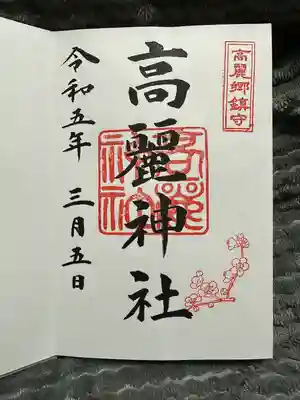 高麗郷鎮守
高麗神社
令和五年 三月五日
高麗神社